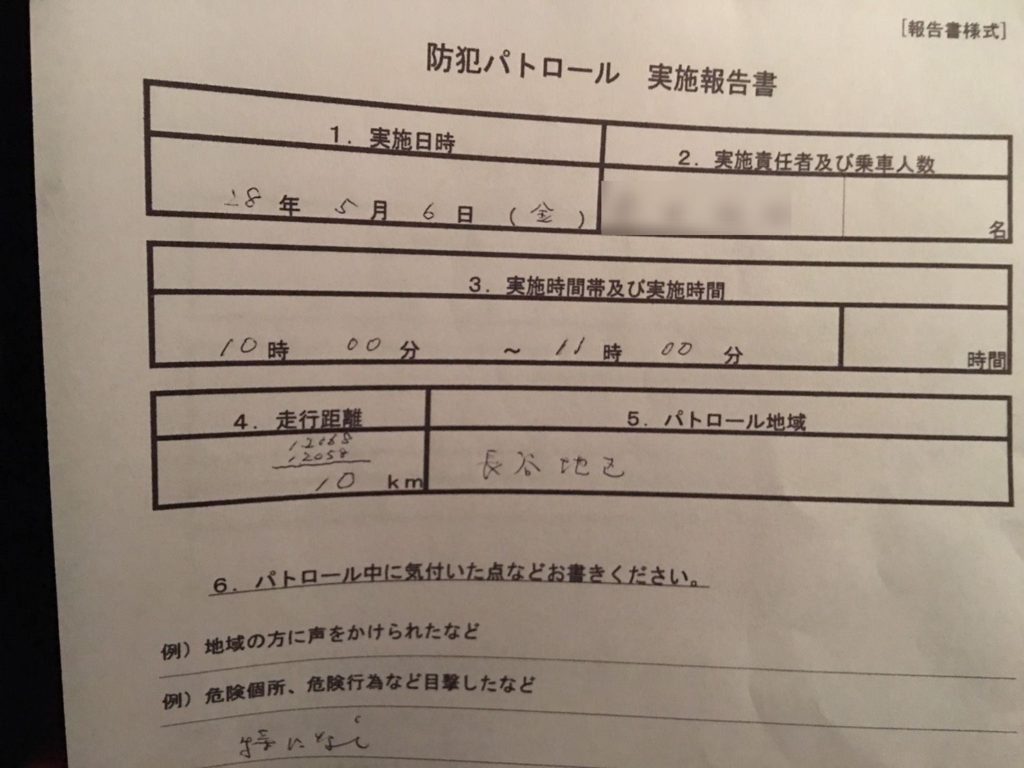 [報告書様式]
防犯パトロール 実施報告書
1. 実施日時
2. 実施責任者及び乗車人数
28 年 5 月 6 日 (金)
名
3. 実施時間帯及び実施時間
10 時 00 分 ～ 11 時 00 分
時間
4. 走行距離
5. パトロール地域
12068
12058
10 km
長谷地区
6. パトロール中に気付いた点などお書きください。
例) 地域の方に声をかけられたなど
例) 危険個所、危険行為など目撃したなど
特になし